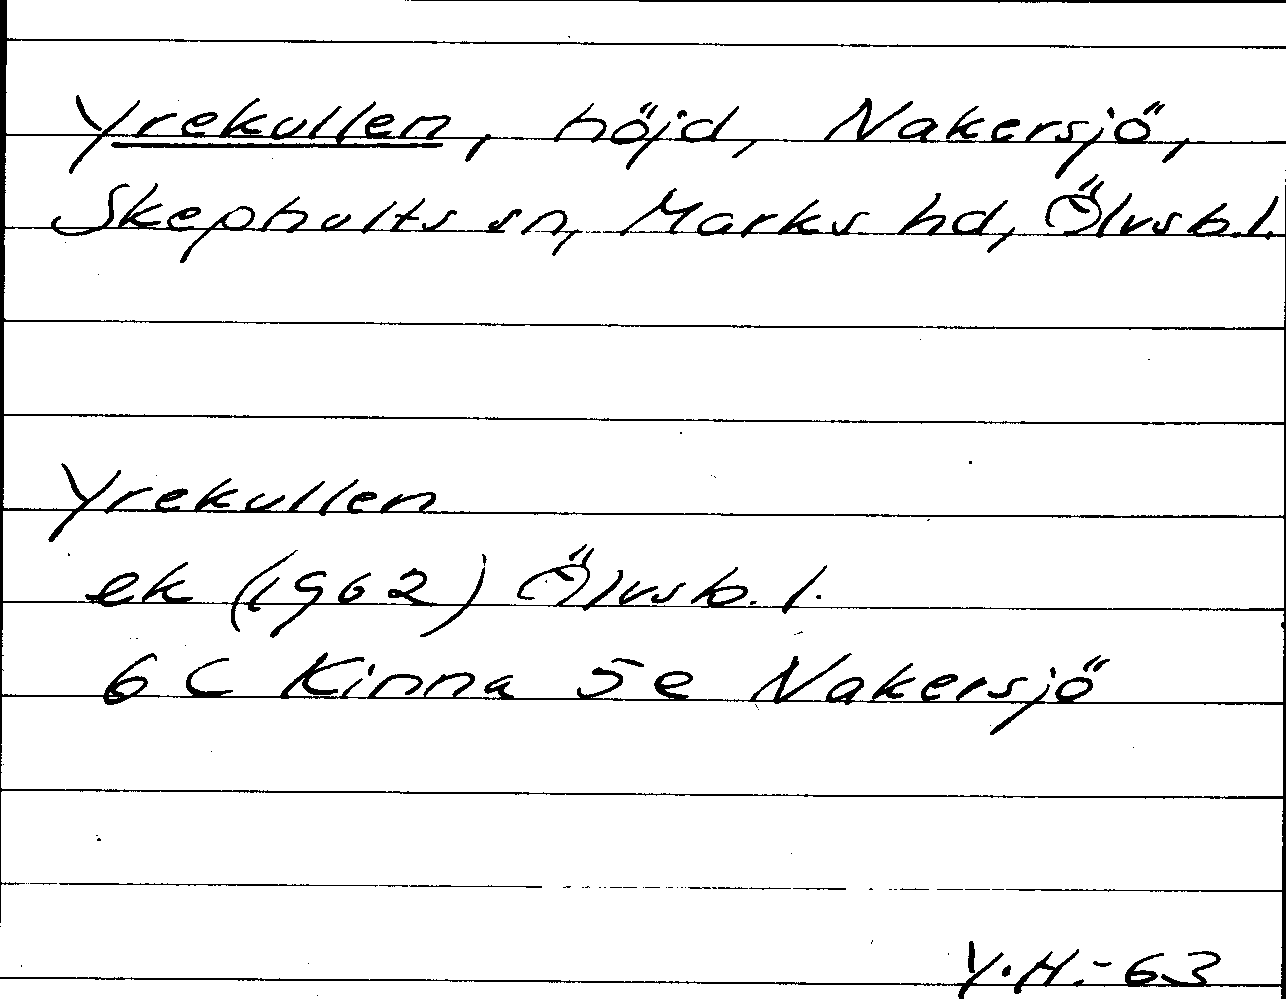 Yrekullen, höjd, Nakersjö,
Skephults sn, Marks hd, Älvsb.l.
Yrekullen
ek (1962) Älvsb.l.
6 C Kinna 5e Nakersjö
Y.H.-63